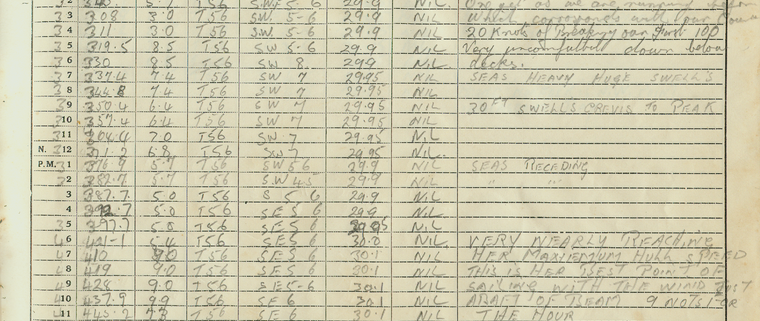 3 308 3.0 T56 SW. 5-6 29.9 NIL
4 311 3.0 T56 SW. 5-6 29.9 NIL 20 Knots of Breaking our First 100
5 319.5 8.5 T56 SW 5-6 29.9 NIL Very uncomfortable down below
6 330 8.5 T56 SW 8 299 NIL decks.
7 337.4 7.4 T56 SW 7 29.95 NIL SEAS HEAVY HUGH SWELL'S
8 344.8 7.4 T56 SW 7 29.95 NIL
9 350.4 6.4 T56 SW 7 29.95 NIL 30FT SWELLS CREVIS TO PEAK
10 357.4 6.4 T56 SW 7 29.95 NIL
11 364.4 7.0 T56 SW 7 29.95 NIL
N. 12 371.2 6.8 T56 SW 7 29.95 NIL
P.M. 1 376.9 5.7 T56 SW 5 6 29.9 NIL SEAS RECEDING
2 382.7 5.7 T56 SW 45 29.9 NIL " "
3 387.7 5.0 T56 S 5 6 29.9 NIL
4 392.7 5.0 T56 SE 5 6 29.9 NIL
5 397.7 5.0 T56 SE 5 6 NIL
6 401-1 5.4 T56 SE 5 6 30.0 NIL VERY NEARLY REACHING
7 410 9.0 T56 SE 5 6 30.1 NIL HER MAXIEMUM HULL SPEED
8 419 9.0 T56 SE 5 6 30.1 NIL THIS IS HER BEST POINT OF
9 428 9.0 T56 SE 5-6 30.1 NIL SAILING WITH THE WIND JUST
10 437.9 9.9 T56 SE 6 30.1 NIL ABAFT OF BEAM 9 NOTS FOR
11 445.2 T56 SE 6 30.1 NIL THE HOUR